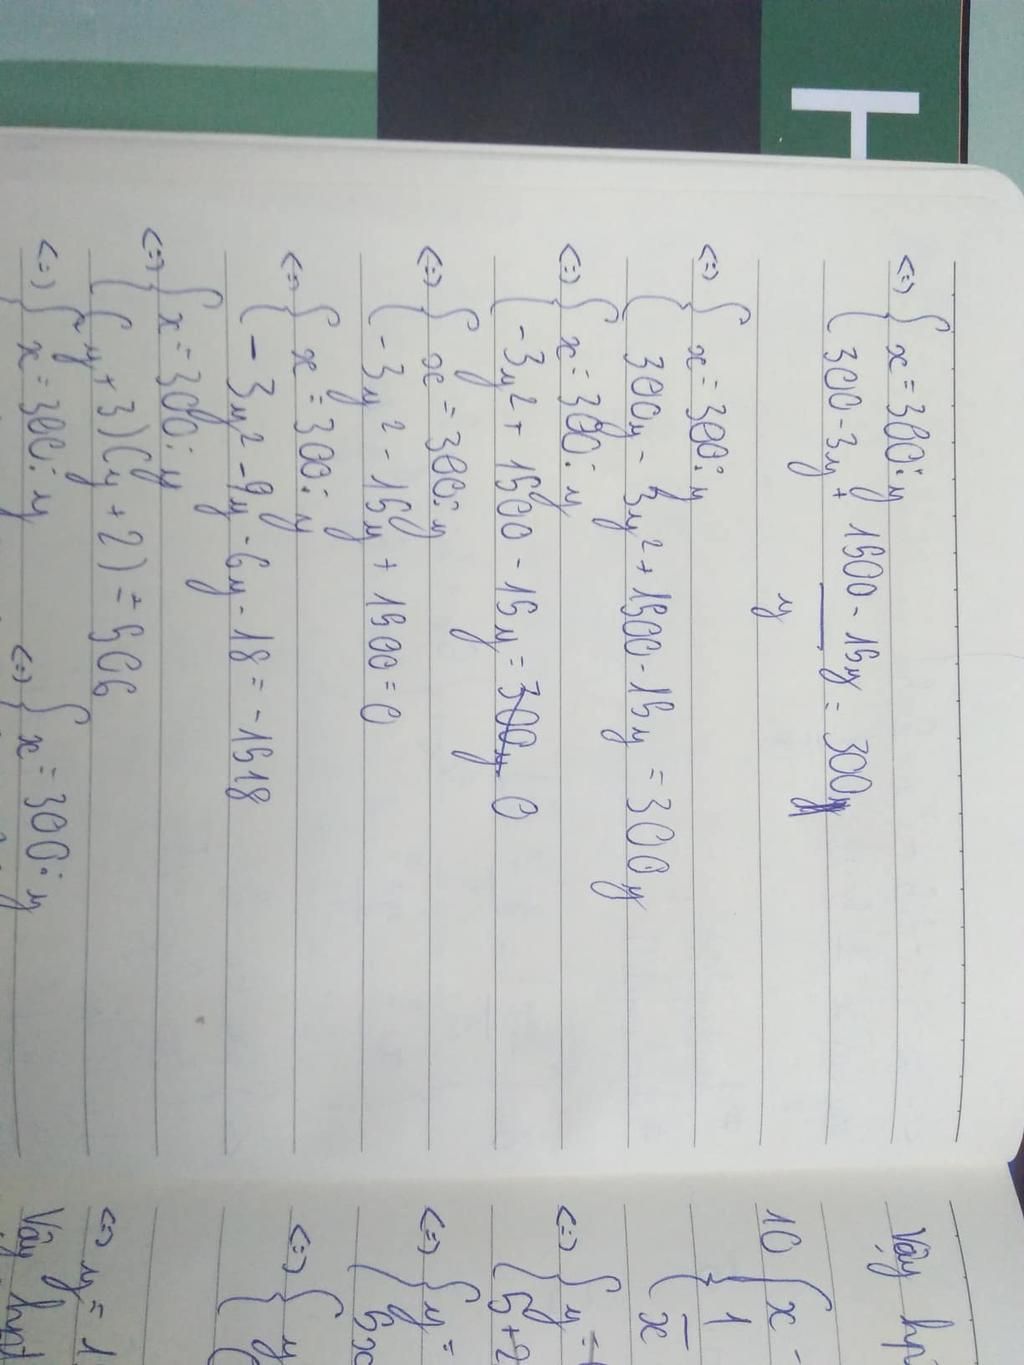 H
<=> { x = 300 : y
{ 300 - 3y + 1500 - 15y = 300
y
<=> { x = 300 : y
{ 300y - 3y² + 1500 - 15y = 300y
<=> { x = 300 : y
{ -3y² + 1500 - 15y = 0
<=> { x = 300 : y
{ -3y² - 15y + 1500 = 0
<=> { x = 300 : y
{ -3y² - 9y - 6y - 18 = -1518
<=> { x = 300 : y
{ (y + 3)(y + 2) = 506
<=> { x = 300 : y <=> { x = 300 : y
Vậy hp
10 { x -
{ 1
x
<=> { y =
{ 5 + 2
<=> { y =
{ 5x
<=> { y
<=> y = 1
Vậy hpt